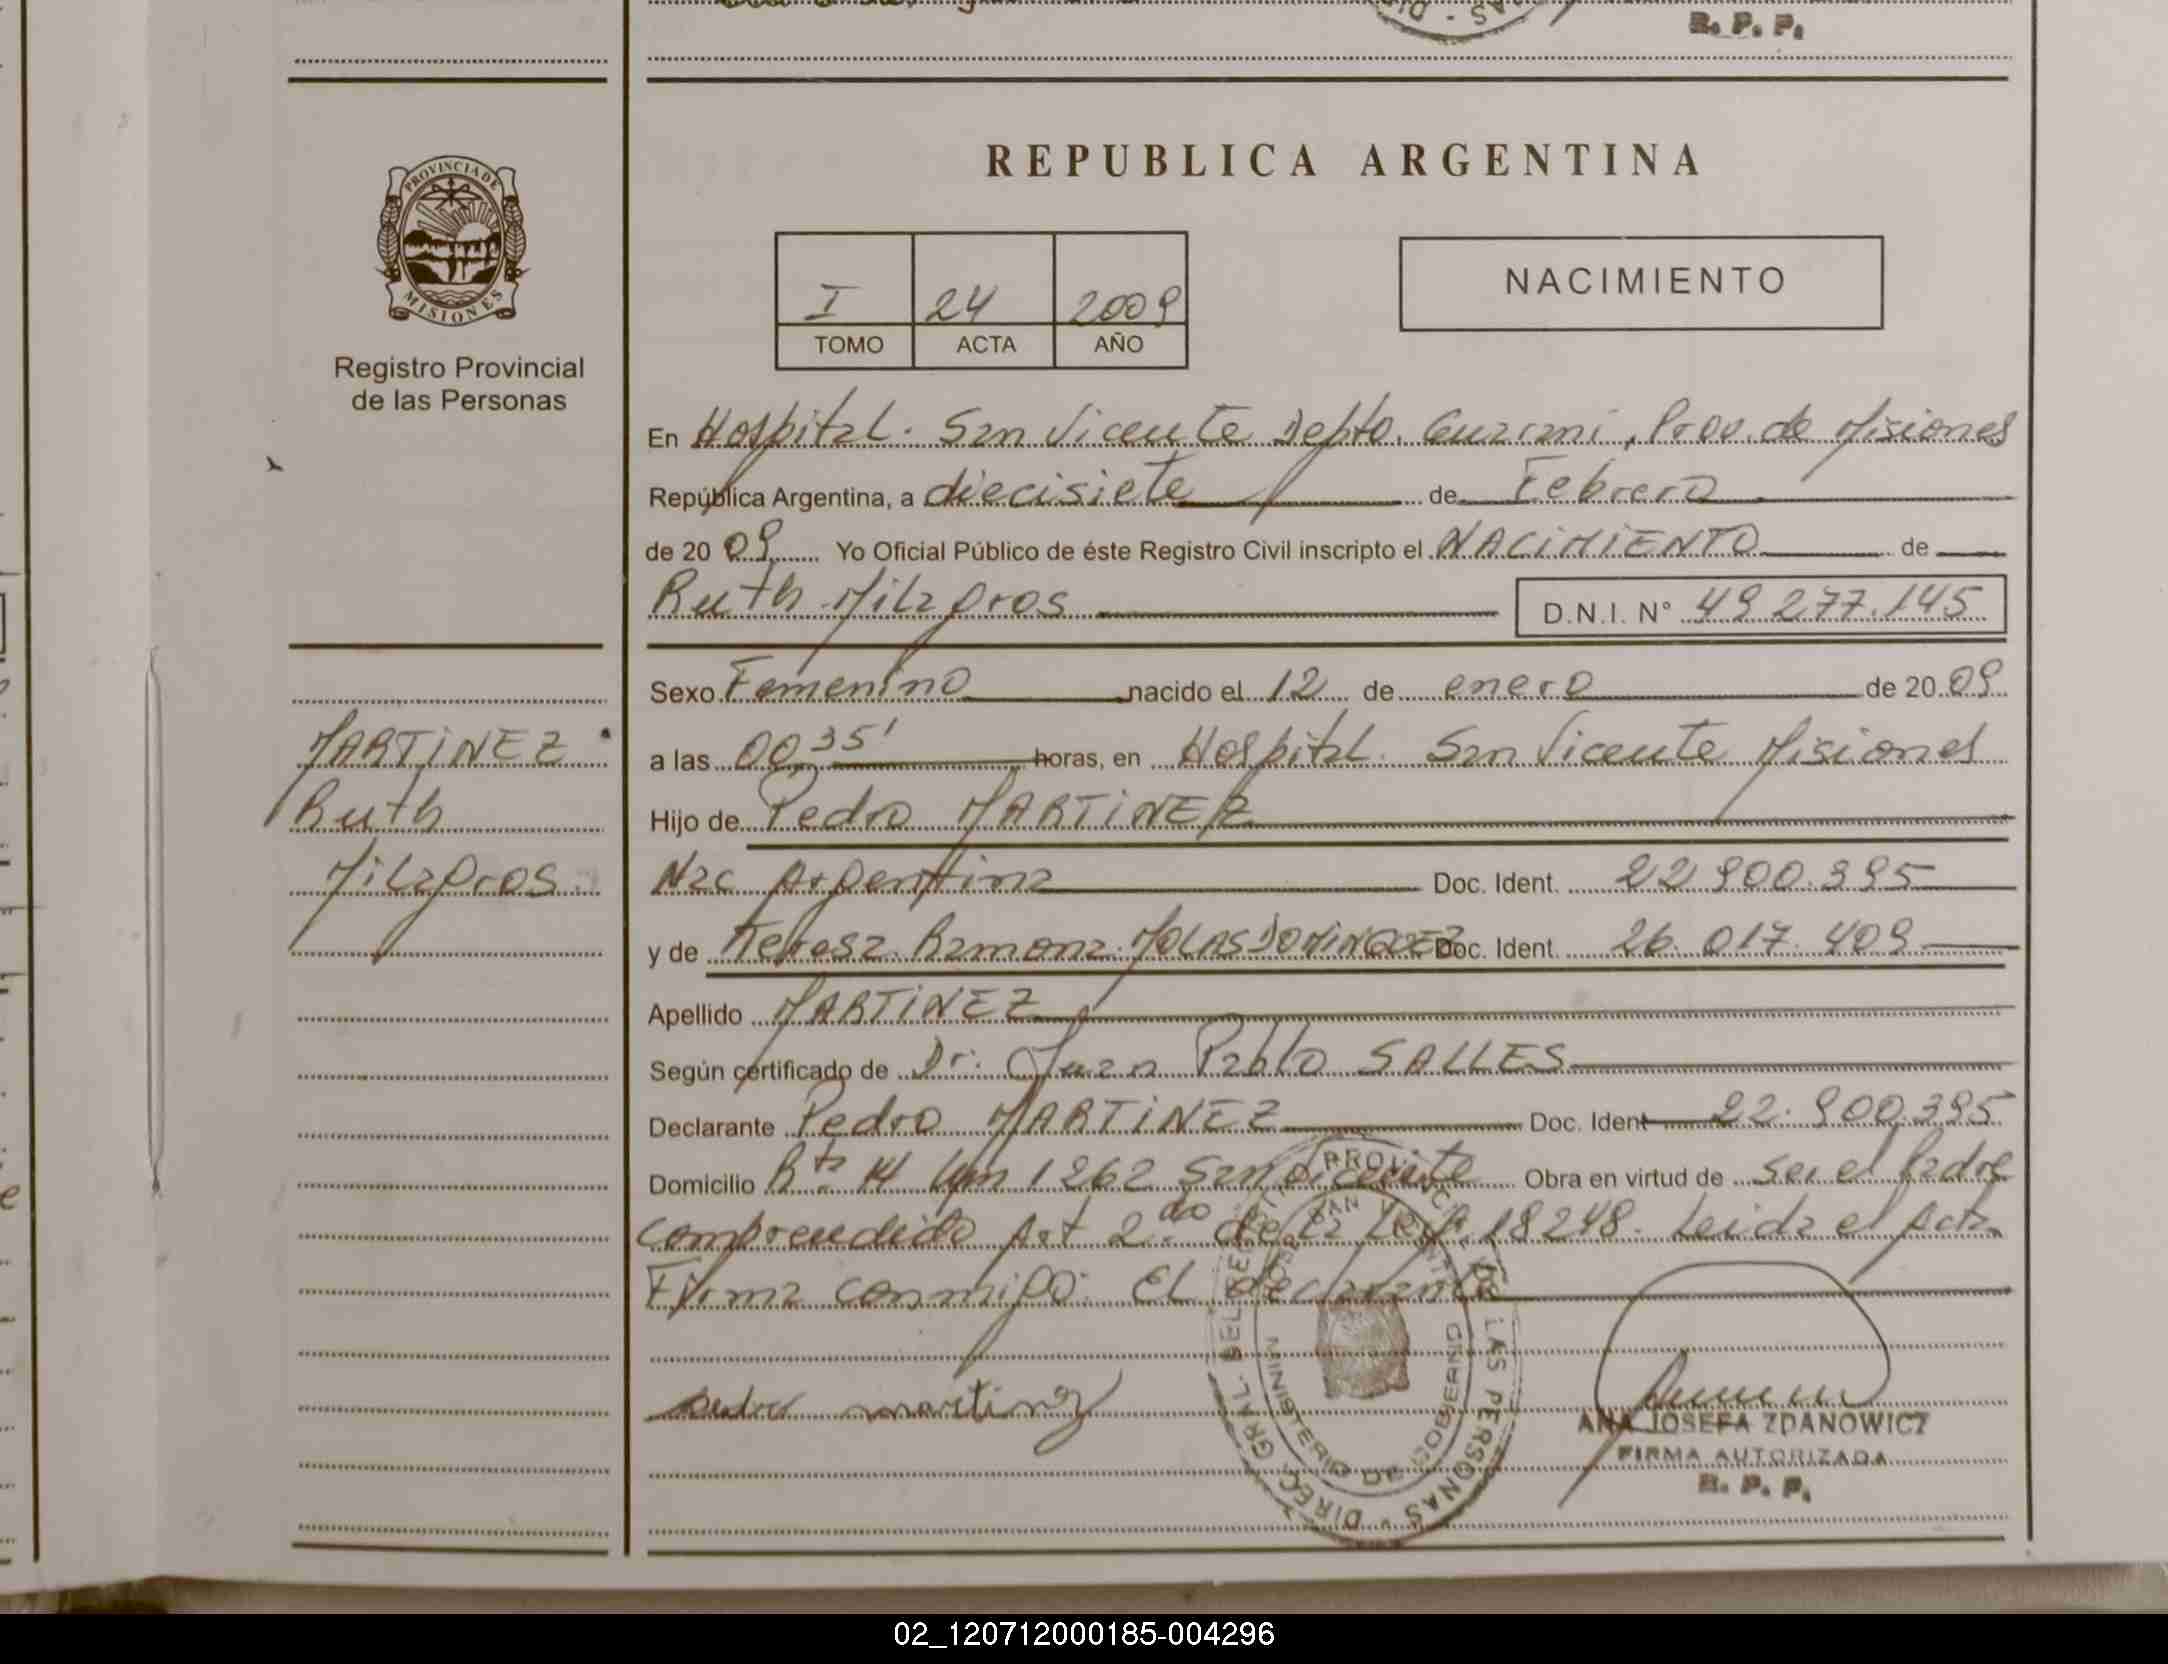 R. P. P.
PROVINCIA DE
MISIONES
Registro Provincial
de las Personas
REPUBLICA ARGENTINA
I 24 2009
TOMO ACTA AÑO
NACIMIENTO
En Hospital. San Vicente Depto. Guarani, Prov. de Misiones
República Argentina, a diecisiete de Febrero
de 20 09 Yo Oficial Público de éste Registro Civil inscripto el NACIMIENTO de
Ruth Milagros D.N.I. N° 49.277.145
Sexo Femenino nacido el 12 de enero de 20 09
a las 00,35' horas, en Hospital. San Vicente Misiones
Hijo de Pedro MARTINEZ
Nac Argentina Doc. Ident. 22.900.395
y de Teresa Ramona MOLAS DOMINGUEZ Doc. Ident. 26.017.409
Apellido MARTINEZ
Según certificado de Dr. Juan Pablo SALLES
Declarante Pedro MARTINEZ Doc. Ident 22.900.395
Domicilio Rta 14 Km 1262 San Vicente Obra en virtud de ser el Padre
comprendido Art 2do de la Ley 18248. Leida el Acta
Firma conmigo: El declarante
MARTINEZ
Ruth
Milagros
pedro martinez
DIREC. GRAL. DEL REG. LAS PERSONAS
SAN VICENTE
MINISTERIO DE GOBIERNO
ANA JOSEFA ZDANOWICZ
FIRMA AUTORIZADA
R. P. P.
02_120712000185-004296